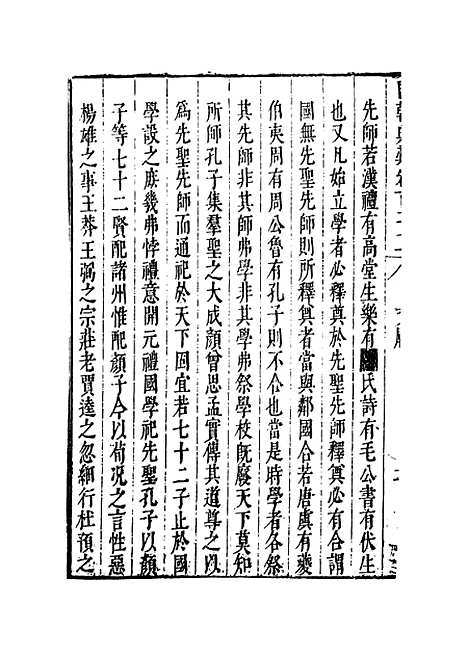 先師若漢禮有高堂生樂有氏詩有毛公書有伏生
也又凡始立學者必釋奠於先聖先師釋奠必有合謂
國無先聖先師則所釋奠者當與鄰國合若唐虞有夔
伯夷周有周公魯有孔子則不合也當是時學者各祭
其先師非其師弗學非其學弗祭學校旣廢天下莫知
所師孔子集羣聖之大成顏曾思孟實傳其道尊之以
爲先聖先師而通祀於天下固宜若七十二子止於國
學設之庶幾弗悖禮意開元禮國學祀先聖孔子以顏
子等七十二賢配諸州惟配顏子今以荀况之言性惡
楊雄之事王莽王弼之宗莊老賈逵之忽細行杜預之